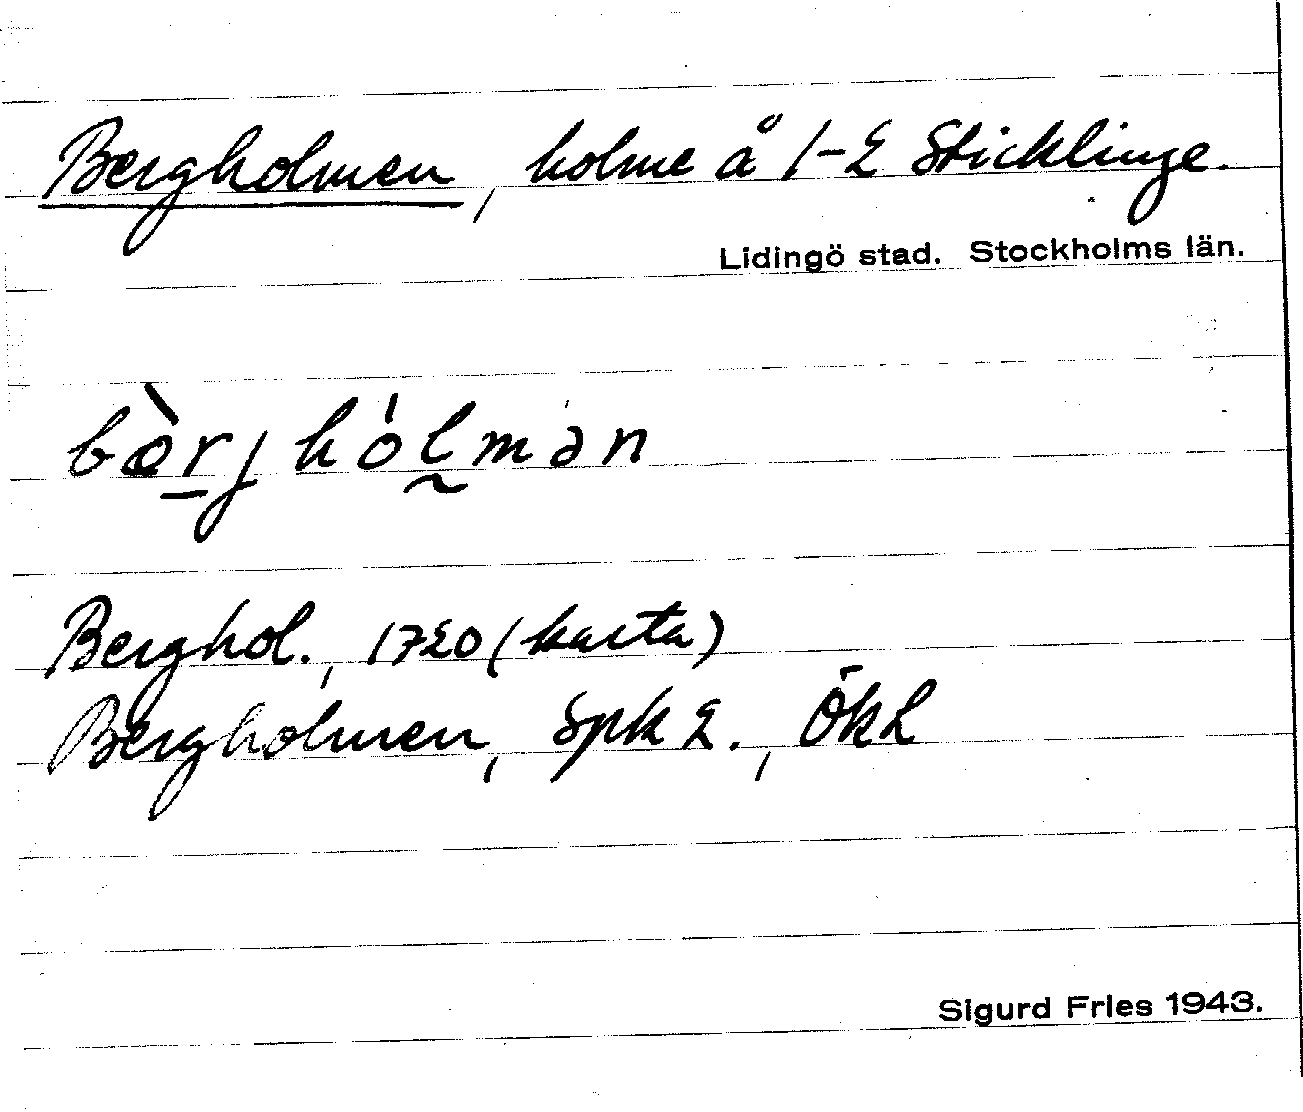 Bergholmen, holme å 1-2 Sticklinge.
Lidingö stad. Stockholms län.
bæ̀rj hólmən
Berghol., 1720 (karta)
Bergholmen, Spk 2., ÖkL
Sigurd Fries 1943.